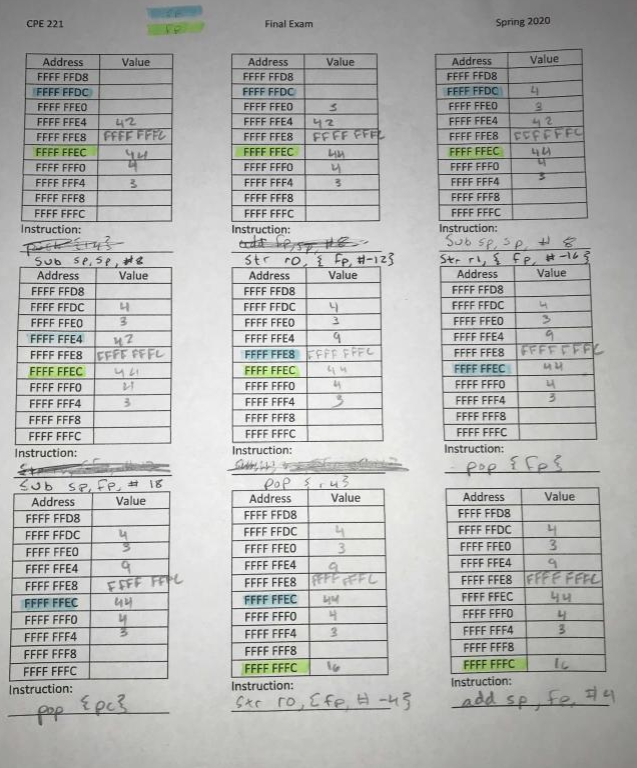 CPE 221 Final Exam Spring 2020
SP
FP
Address Value
FFFF FFD8
FFFF FFDC
FFFF FFE0
FFFF FFE4 42
FFFF FFE8 FFFF FFFC
FFFF FFEC 44
FFFF FFF0 4
FFFF FFF4 3
FFFF FFF8
FFFF FFFC
Instruction:
push {r4}
Sub sp, sp, #8
Address Value
FFFF FFD8
FFFF FFDC
FFFF FFE0 3
FFFF FFE4 42
FFFF FFE8 FFFF FFFC
FFFF FFEC 44
FFFF FFF0 4
FFFF FFF4 3
FFFF FFF8
FFFF FFFC
Instruction:
Str r0, { fp, #-12}
Address Value
FFFF FFD8
FFFF FFDC 4
FFFF FFE0 3
FFFF FFE4 42
FFFF FFE8 FFFF FFFC
FFFF FFEC 44
FFFF FFF0 4
FFFF FFF4 3
FFFF FFF8
FFFF FFFC
Instruction:
Sub sp, sp, # 8
Str r1, { fp, #-16}
Address Value
FFFF FFD8
FFFF FFDC 4
FFFF FFE0 3
FFFF FFE4 42
FFFF FFE8 FFFF FFFC
FFFF FFEC 44
FFFF FFF0 4
FFFF FFF4 3
FFFF FFF8
FFFF FFFC
Instruction:
Sub sp, fp, # 18
Address Value
FFFF FFD8
FFFF FFDC 4
FFFF FFE0 3
FFFF FFE4 9
FFFF FFE8 FFFF FFFC
FFFF FFEC 44
FFFF FFF0 4
FFFF FFF4 3
FFFF FFF8
FFFF FFFC
Instruction:
pop
Address Value
FFFF FFD8
FFFF FFDC 4
FFFF FFE0 3
FFFF FFE4 9
FFFF FFE8 FFFF FFFC
FFFF FFEC 44
FFFF FFF0 4
FFFF FFF4 3
FFFF FFF8
FFFF FFFC
Instruction:
pop {fp}
Address Value
FFFF FFD8
FFFF FFDC 4
FFFF FFE0 3
FFFF FFE4 9
FFFF FFE8 FFFF FFFC
FFFF FFEC 44
FFFF FFF0 4
FFFF FFF4 3
FFFF FFF8
FFFF FFFC
Instruction:
pop {pc}
Address Value
FFFF FFD8
FFFF FFDC 4
FFFF FFE0 3
FFFF FFE4 9
FFFF FFE8 FFFF FFFC
FFFF FFEC 44
FFFF FFF0 4
FFFF FFF4 3
FFFF FFF8
FFFF FFFC 16
Instruction:
Str r0, {fp, # -4}
Address Value
FFFF FFD8
FFFF FFDC 4
FFFF FFE0 3
FFFF FFE4 9
FFFF FFE8 FFFF FFFC
FFFF FFEC 44
FFFF FFF0 4
FFFF FFF4 3
FFFF FFF8
FFFF FFFC 16
Instruction:
add sp, fp, #4